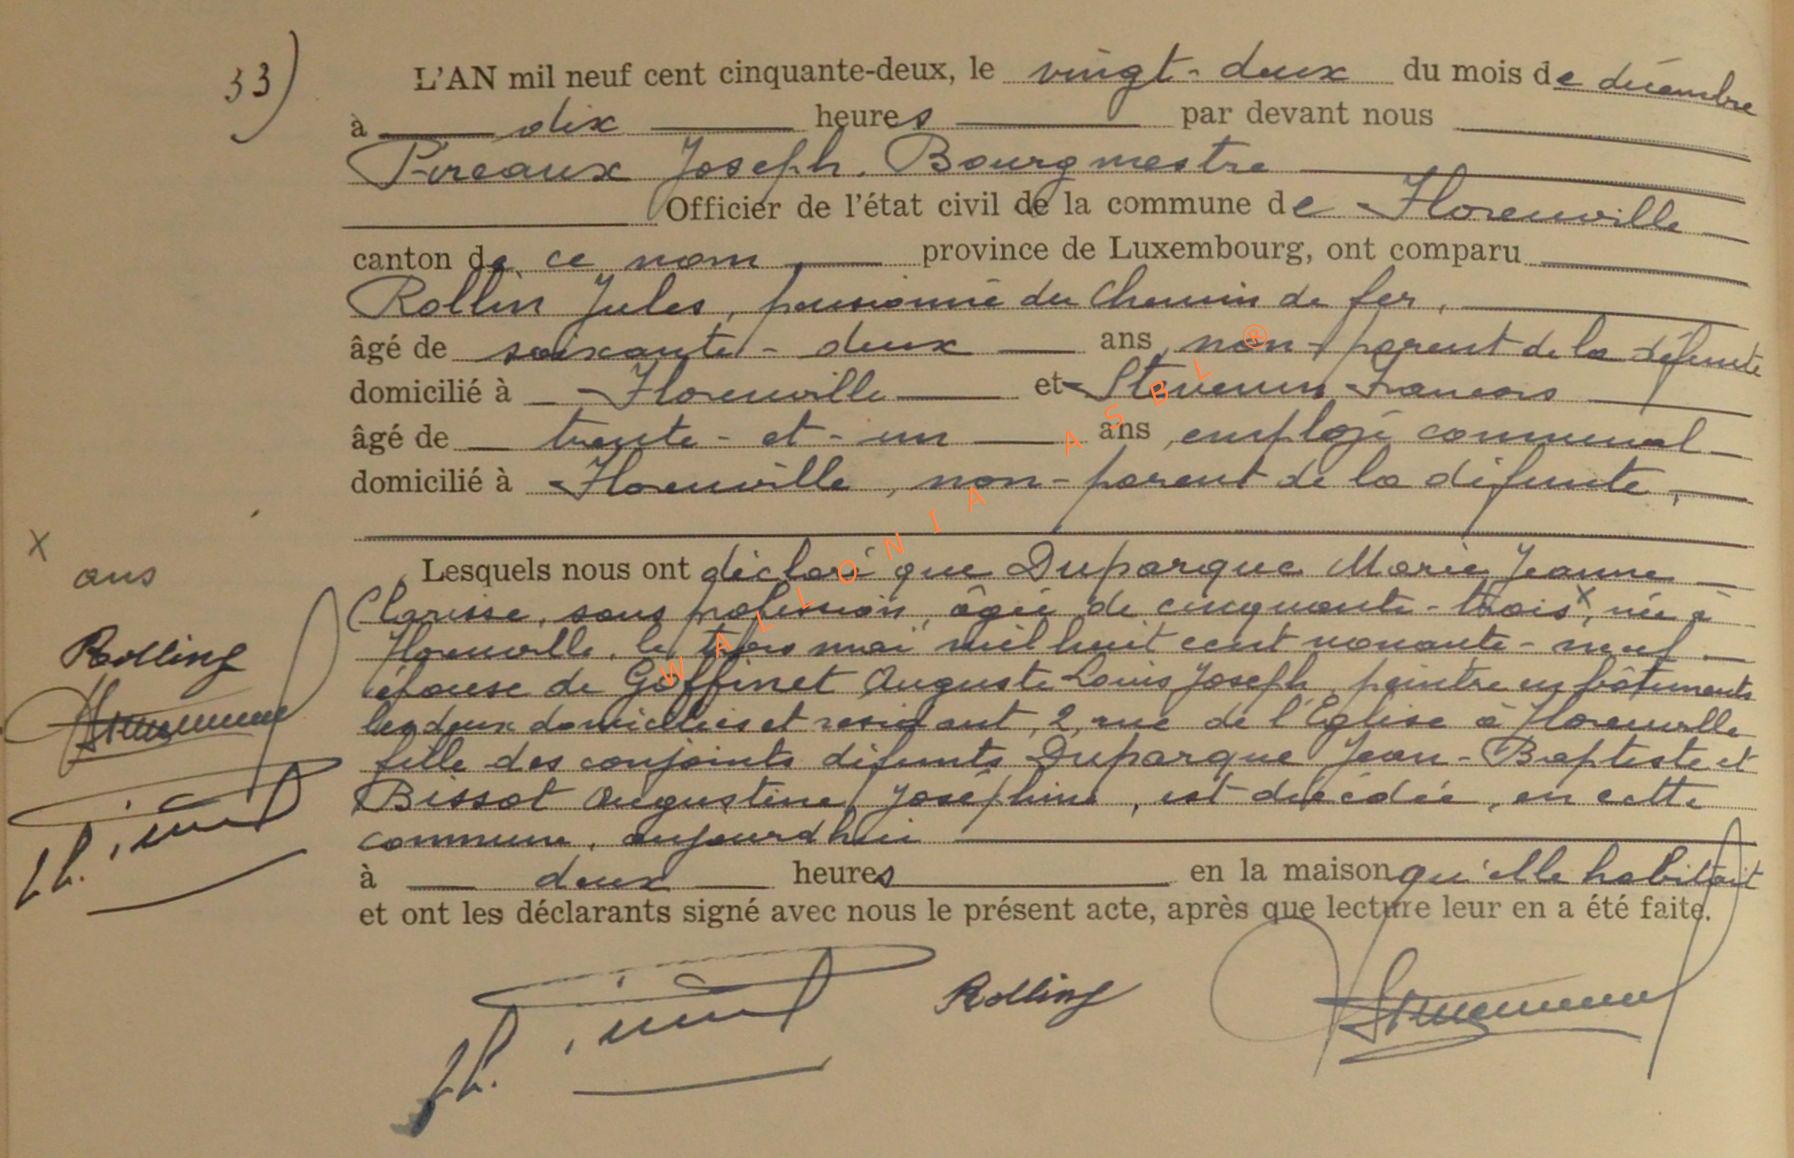 33)
L'AN mil neuf cent cinquante-deux, le vingt-deux du mois de décembre
à dix heures par devant nous
Pireaux Joseph, Bourgmestre
Officier de l'état civil de la commune de Florenville
canton de ce nom, province de Luxembourg, ont comparu
Rollin Jules, pensionné du Chemin de fer,
âgé de soixante-deux ans, non-parent de la défunte
domicilié à Florenville et François
âgé de trente-et-un ans, employé communal
domicilié à Florenville, non-parent de la défunte,
Lesquels nous ont déclaré que Duparque Marie Jeanne
Clarisse, sans profession, âgée de cinquante-trois x, née à
Florenville, le trois mai mil huit cent nonante-neuf
épouse de Goffinet Auguste Louis Joseph, peintre en bâtiments
les deux domiciliés et résidant, 2, rue de l'Eglise à Florenville
fille des conjoints défunts Duparque Jean-Baptiste et
Bissot Augustine Joséphine, est décédée, en cette
commune, aujourd'hui
à deux heures en la maison qu'elle habitait
et ont les déclarants signé avec nous le présent acte, après que lecture leur en a été faite.
x
ans
Rolling
Rolling
WALLONIA ASBL ®